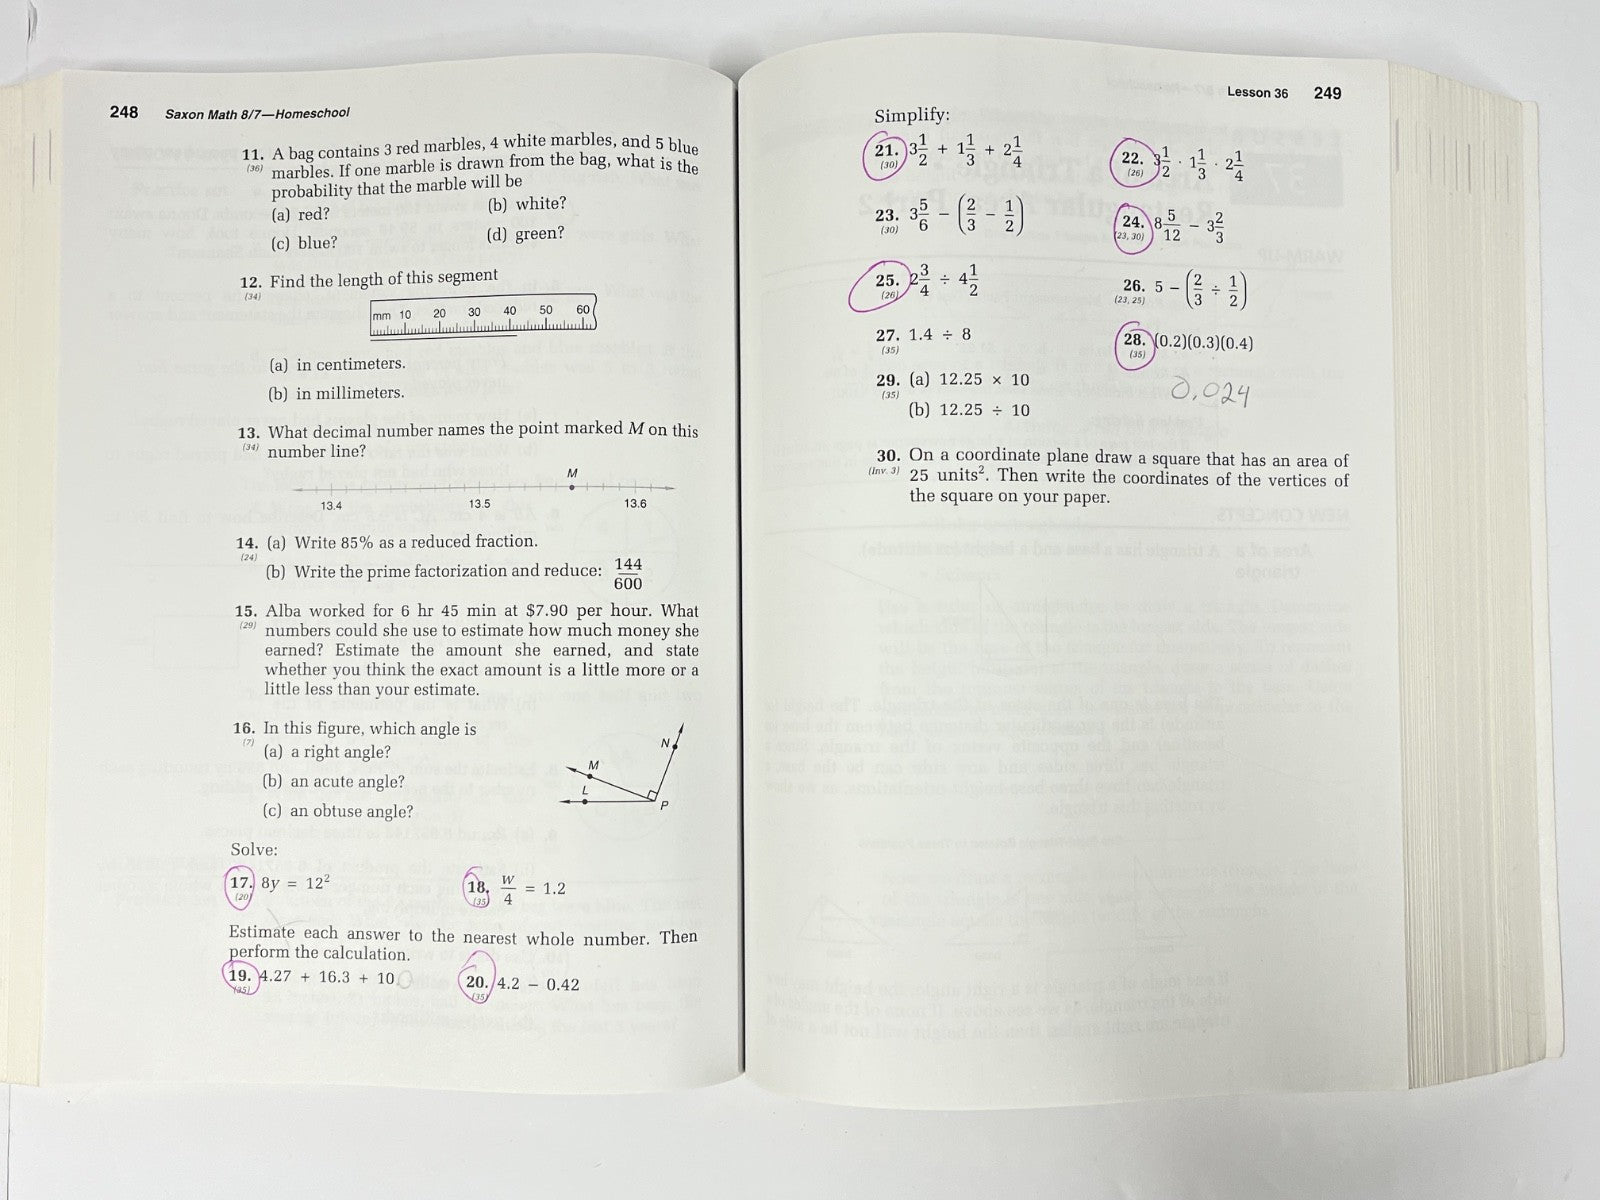 248 Saxon Math 8/7—Homeschool
11. A bag contains 3 red marbles, 4 white marbles, and 5 blue
(36) marbles. If one marble is drawn from the bag, what is the
probability that the marble will be
(a) red? (b) white?
(c) blue? (d) green?
12. Find the length of this segment
(34)
mm 10 20 30 40 50 60
(a) in centimeters.
(b) in millimeters.
13. What decimal number names the point marked M on this
(34) number line?
M
13.4 13.5 13.6
14. (a) Write 85% as a reduced fraction.
(24)
(b) Write the prime factorization and reduce: 144/600
15. Alba worked for 6 hr 45 min at $7.90 per hour. What
(29) numbers could she use to estimate how much money she
earned? Estimate the amount she earned, and state
whether you think the exact amount is a little more or a
little less than your estimate.
16. In this figure, which angle is
(7) (a) a right angle?
(b) an acute angle?
(c) an obtuse angle?
N
M
L
P
Solve:
17. 8y = 12² 18. w/4 = 1.2
(20) (35)
Estimate each answer to the nearest whole number. Then
perform the calculation.
19. 4.27 + 16.3 + 10.0 20. 4.2 − 0.42
(35) (35)
Lesson 36 249
Simplify:
21. 3 1/2 + 1 1/3 + 2 1/4 22. 3 1/2 · 1 1/3 · 2 1/4
(30) (26)
23. 3 5/6 − (2/3 − 1/2) 24. 8 5/12 − 3 2/3
(30) (23, 30)
25. 2 3/4 ÷ 4 1/2 26. 5 − (2/3 ÷ 1/2)
(26) (23, 25)
27. 1.4 ÷ 8 28. (0.2)(0.3)(0.4)
(35) (35)
29. (a) 12.25 × 10 0.024
(35)
(b) 12.25 ÷ 10
30. On a coordinate plane draw a square that has an area of
(Inv. 3) 25 units². Then write the coordinates of the vertices of
the square on your paper.